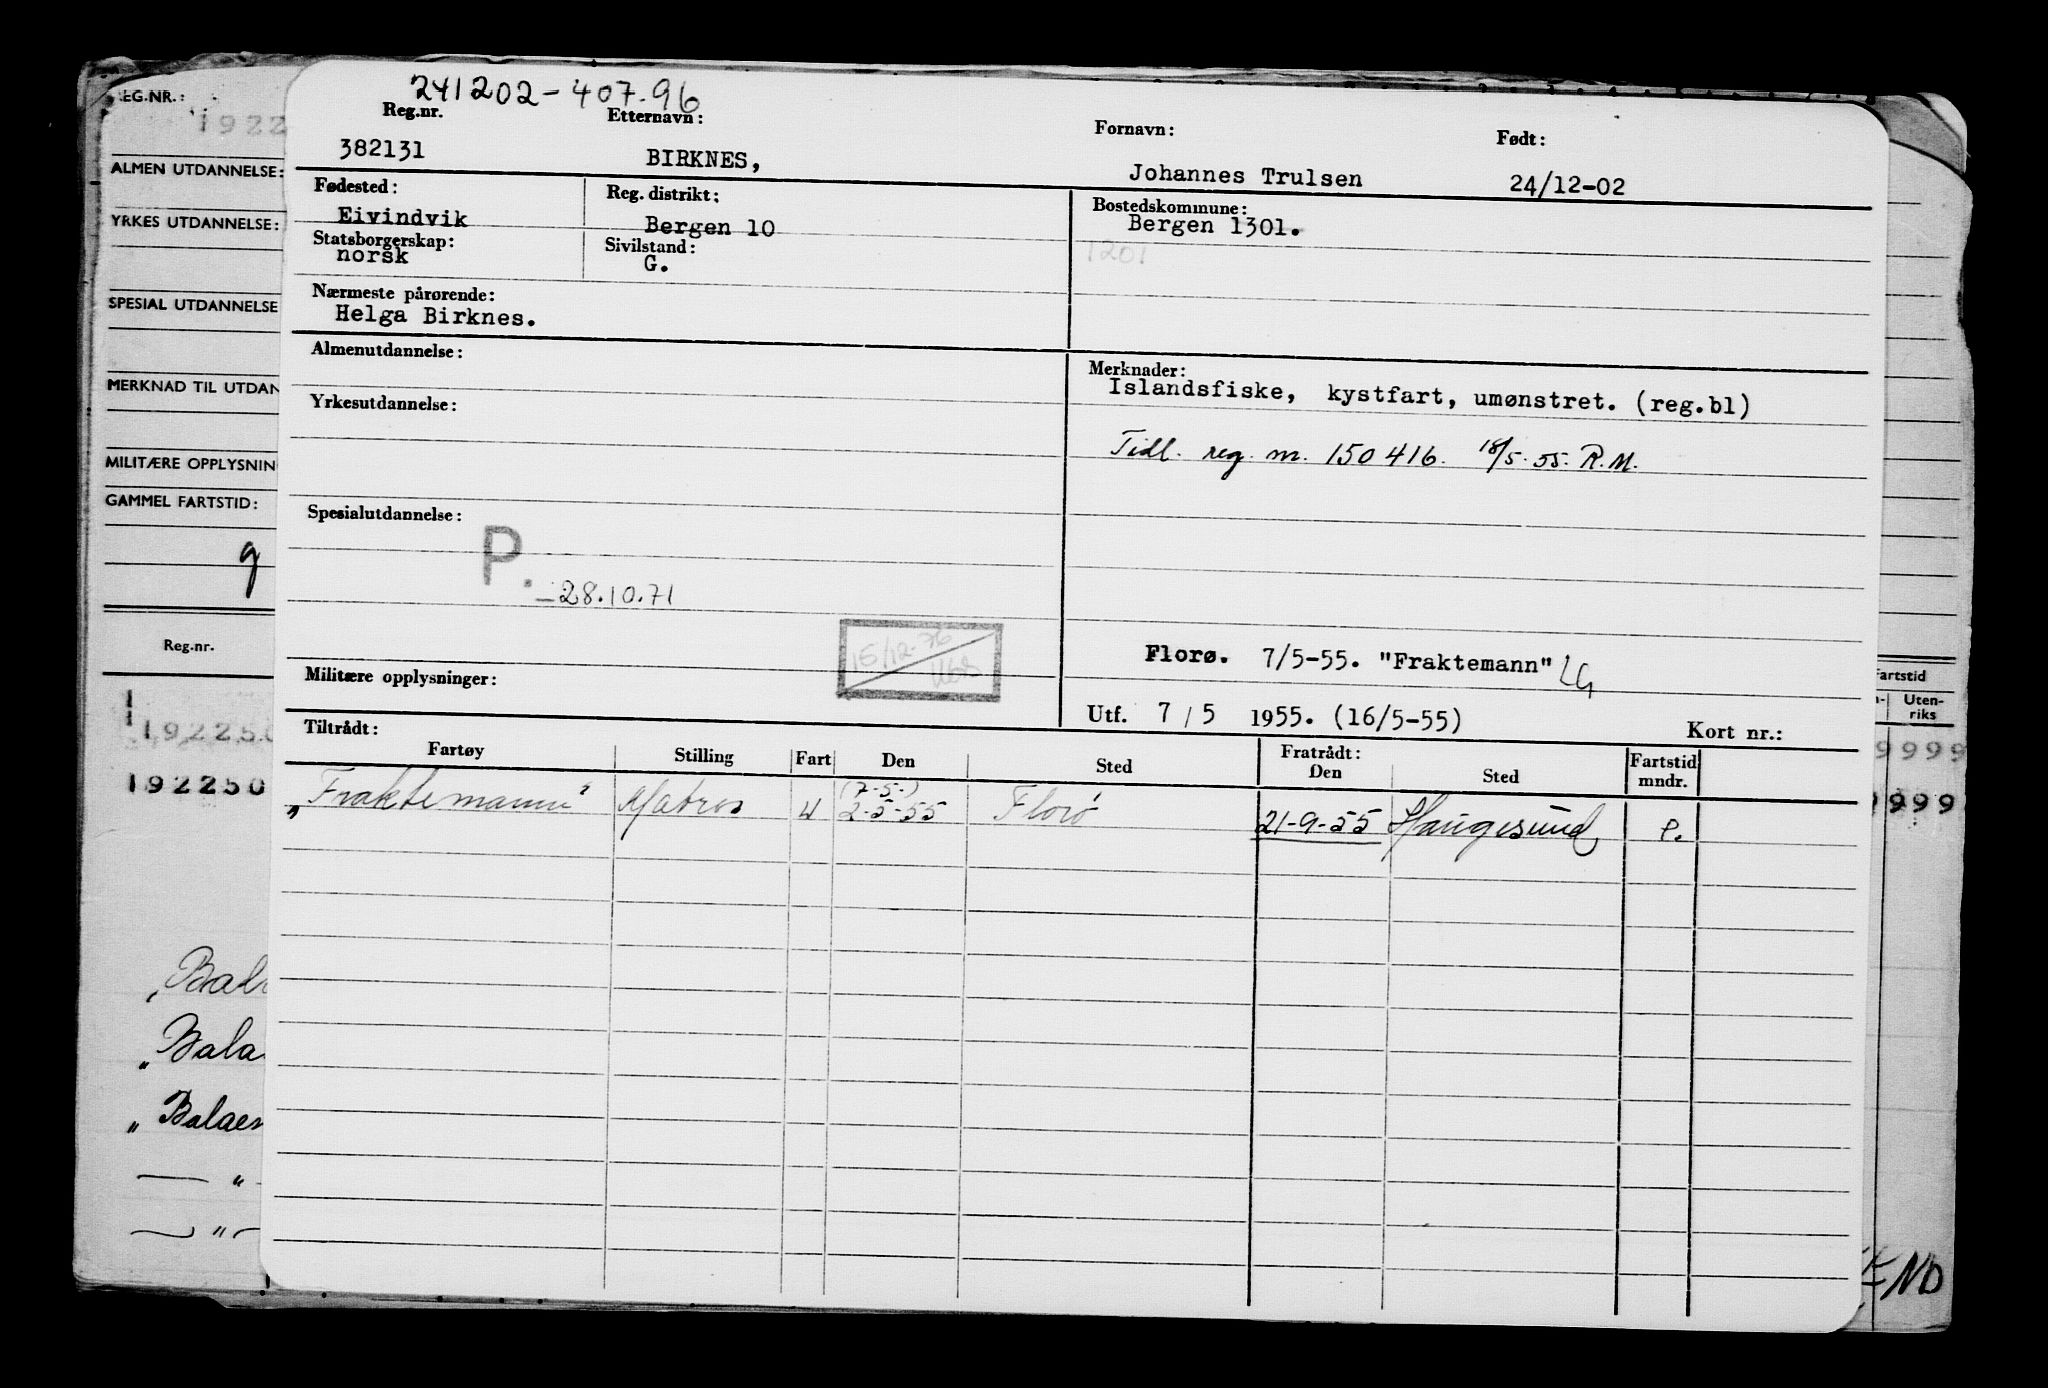 241202-407.96
Reg.nr. Etternavn: Fornavn: Født:
382131 BIRKNES, Johannes Trulsen 24/12-02
Fødested: Reg. distrikt: Bostedskommune:
Eivindvik Bergen 10 Bergen 1301.
Statsborgerskap: Sivilstand: 1201
norsk G.
Nærmeste pårørende:
Helga Birknes.
Almenutdannelse: Merknader:
Islandsfiske, kystfart, umønstret. (reg.bl)
Yrkesutdannelse:
Tidl. reg. nr. 150416. 18/5-55. R.M.
Spesialutdannelse:
P. - 28.10.71
15/12-76
Florø. 7/5-55. "Fraktemann" LG
Militære opplysninger:
Utf. 7 / 5 1955. (16/5-55) Kort nr.:
Tiltrådt: Fratrådt:
Fartøy Stilling Fart Den Sted Den Sted Fartstid mndr.
(7-5-)
"Fraktemann" Matros 2-5-55 Florø 21-9-55 Haugesund P.
REG.NR.:
1922
ALMEN UTDANNELSE:
YRKES UTDANNELSE:
SPESIAL UTDANNELSE
MERKNAD TIL UTDAN
MILITÆRE OPPLYSNIN
GAMMEL FARTSTID:
g
Reg.nr.
192250
192250
"Bala
"Bala
"Balaen
— " —
— " —
artstid
n- Uten-
riks
9999
9999
ND